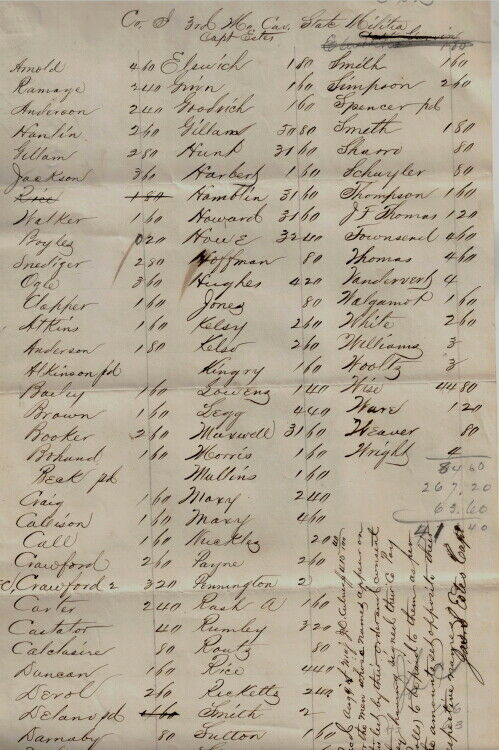 Co. I 3rd Mo. Cav. State Militia
Capt Estes
Arnold 4 60
Ramage 2 40
Anderson 2 40
Hanlin 2 60
Gillam 2 80
Jackson 3 60
Price 1 80
Walker 60
Boyles 20
Snediger 2 80
Ogle 3 60
Clapper 1 60
Atkins 1 60
Anderson 1 80
Atkinson pd
Baily 1 60
Brown 1 60
Booker 2 60
Bohund 1 60
Beak pd
Craig 1 60
Callison 1 60
Call 1 60
Crawford 2 60
Crawford 2 3 20
Carter 2 40
Castator 40
Calclasire 80
Duncan 1 60
Derol 2 60
Delano pd
Darnaby 80
Elswich 1 80
Irwn 1 60
Goodrich 1 60
Gillam 30 80
Hunt 31 60
Harbert 1 60
Hamblin 31 60
Howard 31 60
Howe 32 40
Hoffman 80
Hughes 4 20
Jones 80
Kelsy 2 60
Kelso 2 60
Kingry 1 60
Lowens 1 40
Legg 4 40
Maxwell 31 60
Morris 1 60
Mullins 1 60
Maxy 2 40
Maxy 4 60
Nuckles 20
Payne 2 60
Pennington 2
Rash A 1 60
Rumley 3 20
Routz 80
Rice 4 40
Ricketts 2 40
Smith 2
Sutton 1 60
Smith 1 60
Simpson 2 60
Spencer pd
Smith 1 80
Sharro 80
Schuyler 80
Thompson 1 60
J F Thomas 1 20
Townsend 4 60
Thomas 4 60
Vandervert 4
Walgamot 1 60
White 2 60
Williams 3
Wooltz 3
Wise 44 80
Ware 1 20
Weaver 80
Wright 4
84 60
267.20
63.60
the men whose names appear on
this list by their order and consent
they having signed their to Pay
to be used to them as per
the amounts set opposite their
respective names